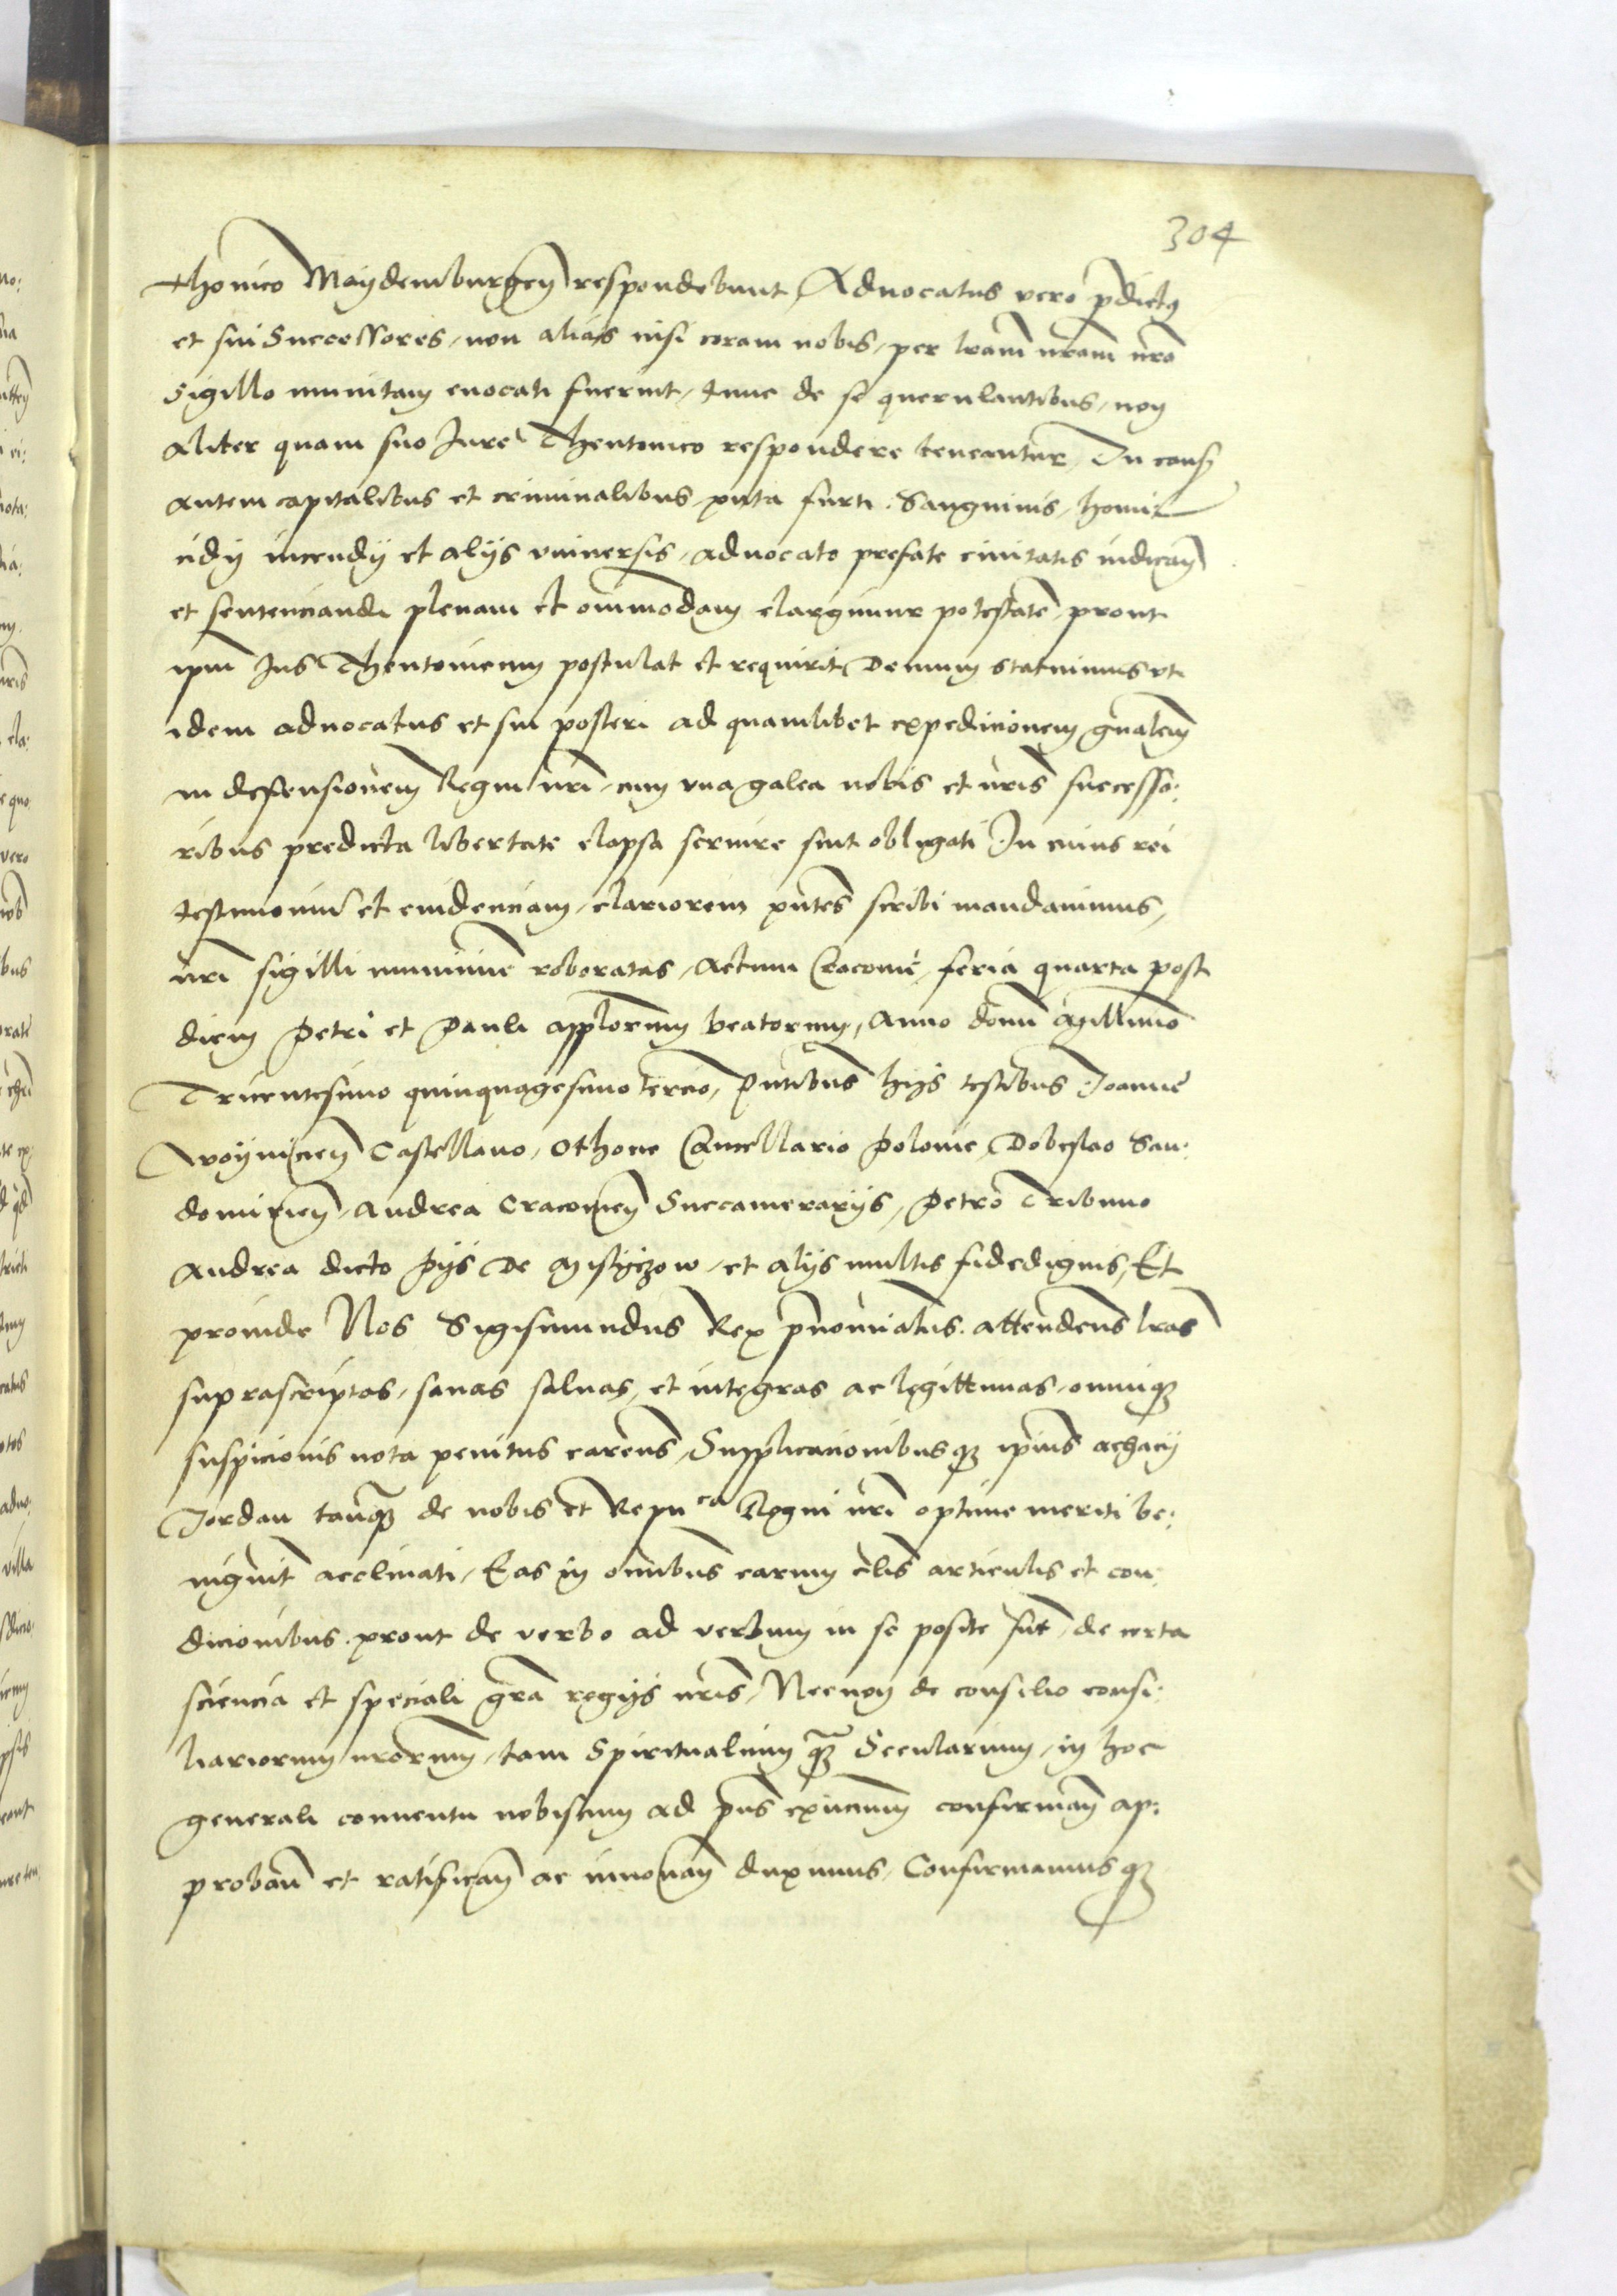 304
thonico Maydemburgeñ respondebunt, Aduocatus vero p̄dictus
et sui Successores, non alias nisi coram nobis, per lr̄am nr̄am nr̄o
Sigillo munitam euocati fuerint, tunc de se querulantibus, non
aliter quam suo Iure Theutonico respondere teneantur, In causis
autem capitalibus et criminalibus, puta furti, Sanguinis, homi
cidij incendij et alijs vniuersis, aduocato prefate ciuitatis iudicañ
et sentenciandi plenam et om̄imodam elargimur potestatē, prout
ip̄m Ius Theutonicum postulat et requirit, Demum statuimus vt
idem aduocatus et sui posteri ad quamlibet expedicionem gn̄alem
in defensionem Regni nr̄i, cum vna galea nobis et nr̄is successo:
ribus predicta libertate elapsa seruire sint obligati, In cuius rei
testimoniū et euidenciam, clariorem pn̄tes scribi mandauimus,
nr̄i sigilli munimine roboratas, Actum Cracouie, feria quarta post
diem Petri et Pauli app̄lorum beatorum, Anno domī Millimo
Tricentesimo quinquagesimo tercio, Pn̄tibus hijs testibus Joanne
Woyniceñ Castellano, Othone Cancellario Polonie, Dobeslao San:
domirieñ, Andrea Cracouieñ Succamerarijs, Petro Tribuno
Andrea dicto Pijs De Mistijczow, et alijs multis fidedignis, Et
proinde Nos Sigismundus Rex p̄nominatus, attendens lr̄as
suprascriptas, sanas saluas, et integras ac legittimas, omniq3
suspicionis nota penitus carens, Supplicacionibusq3 ip̄ius achacij
Jordan tanq̄3 de nobis et Repuca Regni nr̄i optime meriti be:
nignit̄ acclinati, Eas in om̄ibus earum cl̄is articulis et con:
dicionibus, prout de verbo ad verbum in se posite sūt, de certa
sciencia et speciali gr̄a regijs nr̄is, Necnon de consilio consi:
liariorum nr̄orum, tam Spiritualium q̄3 Secularium, in hoc
generali conuentu nobiscum ad pn̄s exn̄cium confirmañ ap:
probañ et ratificañ ac innouañ duximus, Confirmamusq3